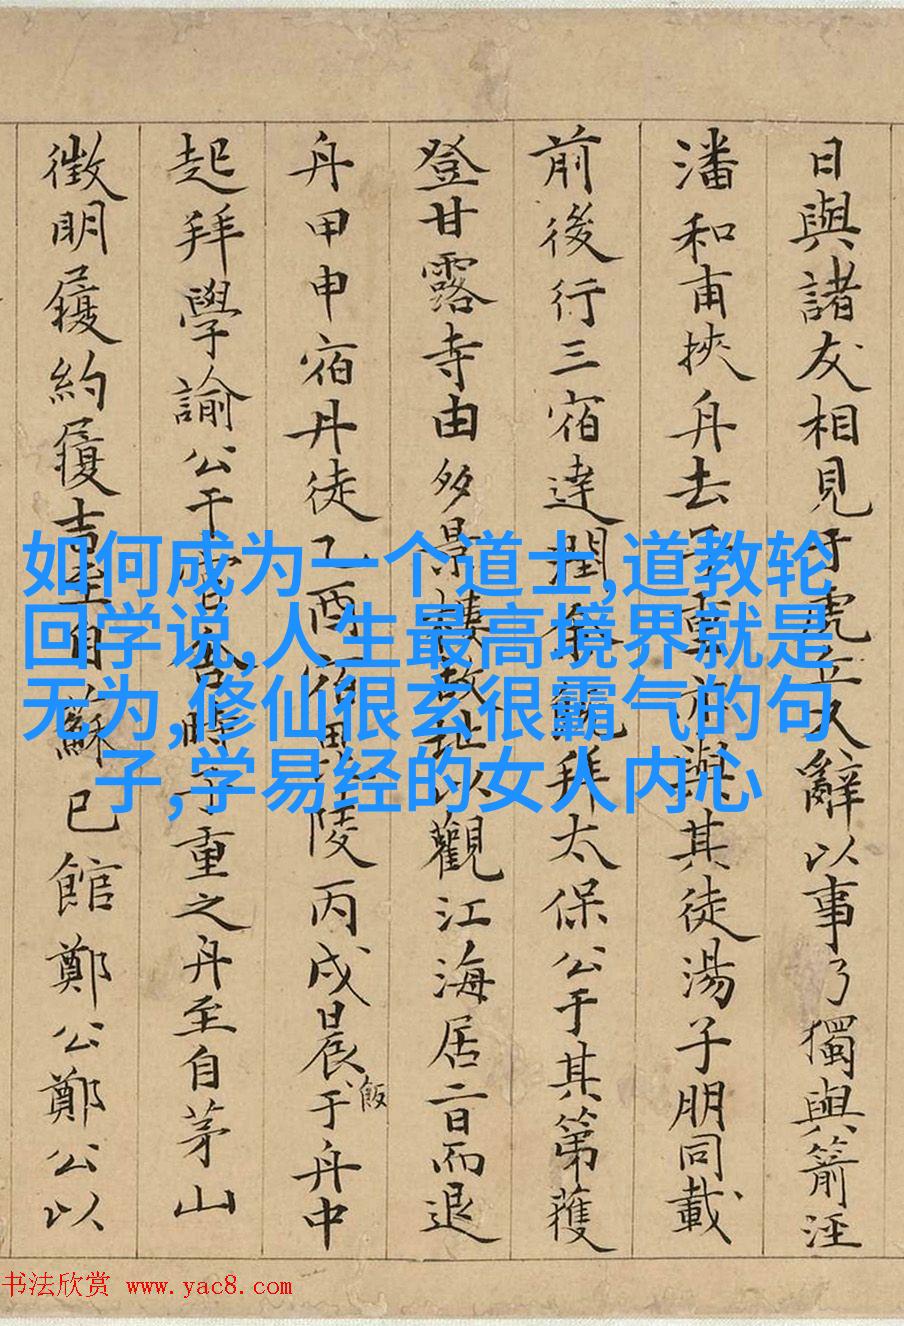 日與諸友相見于虎丘又辭以事乃獨與箭泾
潘和甫挾舟去子重亦與其徒湯子朋同載
前後行三宿達潤集觀拜太保公于其第獲
登甘露寺由多景樓故址以觀江海居二日而退
舟甲申宿丹徒乙酉宿毘陵丙戌晨飯于舟中
起拜學諭公于官舍時子重之舟至自茅山
徵明履約履吉至自蘇已館鄭公鄭公以
如何成为一个道士,道教轮
回学说,人生最高境界就是
无为,修仙很玄很霸气的句
子,学易经的女人内心
书法欣赏 www.yac8.com